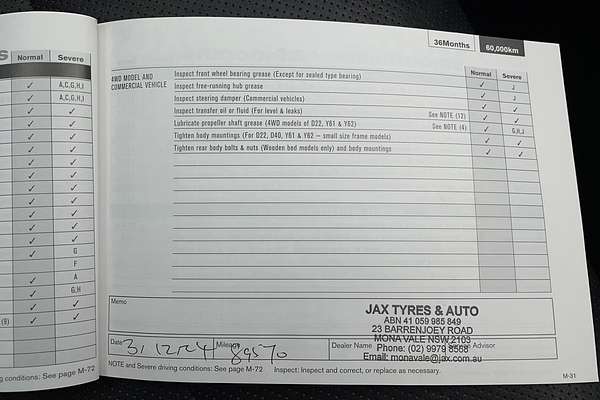 s
Normal Severe
✓ A,C,G,H,I
✓ A,C,G,H,I
✓ ✓
✓ ✓
✓ ✓
✓ ✓
✓ ✓
✓ ✓
✓ ✓
✓ ✓
✓ ✓
✓ ✓
✓ G
F
✓ A
✓ G,H
✓ ✓
(9) ✓ ✓
ng conditions: See page M-72
36Months 60,000km
Normal Severe
4WD MODEL AND
COMMERCIAL VEHICLE
Inspect front wheel bearing grease (Except for sealed type bearing) ✓ J
Inspect free-running hub grease ✓ J
Inspect steering damper (Commercial vehicles) ✓ ✓
Inspect transfer oil or fluid (For level & leaks) See NOTE (12) ✓ ✓
Lubricate propeller shaft grease (4WD models of D22, Y61 & Y62) See NOTE (4) ✓ G,H,J
Tighten body mountings (For D22, D40, Y61 & Y62 – small size frame models) ✓ ✓
Tighten rear body bolts & nuts (Wooden bed models only) and body mountings ✓ ✓
Memo
JAX TYRES & AUTO
ABN 41 059 985 849
23 BARRENJOEY ROAD
MONA VALE NSW 2103
Phone: (02) 9979 8568
Email: monavale@jax.com.au
Date Mileage 89570
Dealer Name Service Advisor
NOTE and Severe driving conditions: See page M-72 Inspect: Inspect and correct, or replace as necessary.
M-31